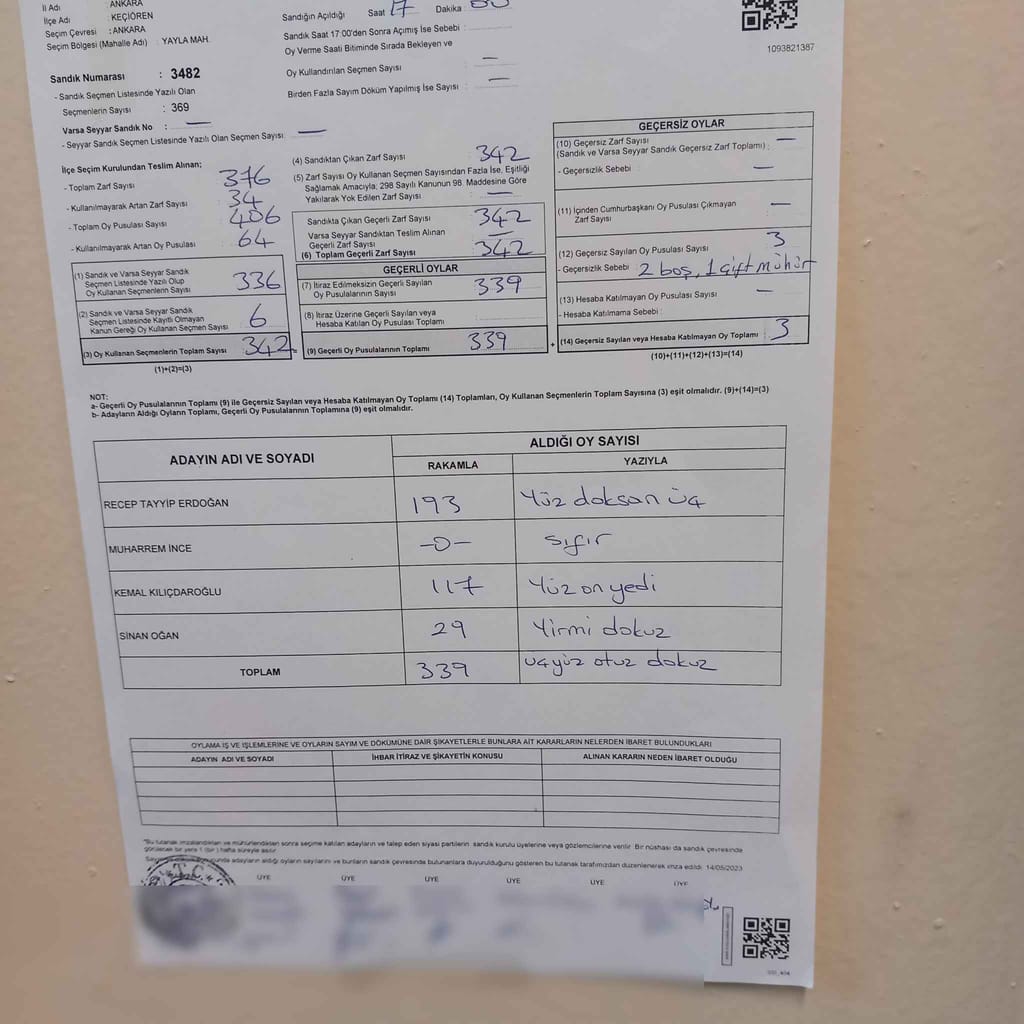 İl Adı : ANKARA
İlçe Adı : KEÇİÖREN
Seçim Çevresi : ANKARA
Seçim Bölgesi (Mahalle Adı) : YAYLA MAH.
Sandığın Açıldığı Saat 17 Dakika
Sandık Saat 17:00'den Sonra Açımış İse Sebebi :
Oy Verme Saati Bitiminde Sırada Bekleyen ve
Oy Kullandırılan Seçmen Sayısı : —
Birden Fazla Sayım Döküm Yapılmış İse Sayısı : —
1093821387
Sandık Numarası : 3482
- Sandık Seçmen Listesinde Yazılı Olan
Seçmenlerin Sayısı : 369
Varsa Seyyar Sandık No : —
- Seyyar Sandık Seçmen Listesinde Yazılı Olan Seçmen Sayısı: —
İlçe Seçim Kurulundan Teslim Alınan;
- Toplam Zarf Sayısı 376
- Kullanılmayarak Artan Zarf Sayısı 34
- Toplam Oy Pusulası Sayısı 406
- Kullanılmayarak Artan Oy Pusulası 64
(1) Sandık ve Varsa Seyyar Sandık
Seçmen Listesinde Yazılı Olup
Oy Kullanan Seçmenlerin Sayısı 336
(2) Sandık ve Varsa Seyyar Sandık
Seçmen Listesinde Kayıtlı Olmayan
Kanun Gereği Oy Kullanan Seçmen Sayısı 6
(3) Oy Kullanan Seçmenlerin Toplam Sayısı 342 =
(1)+(2)=(3)
(4) Sandıktan Çıkan Zarf Sayısı 342
(5) Zarf Sayısı Oy Kullanan Seçmen Sayısından Fazla İse, Eşitliği
Sağlamak Amacıyla; 298 Sayılı Kanunun 98. Maddesine Göre
Yakılarak Yok Edilen Zarf Sayısı —
Sandıkta Çıkan Geçerli Zarf Sayısı 342
Varsa Seyyar Sandıktan Teslim Alınan
Geçerli Zarf Sayısı —
(6) Toplam Geçerli Zarf Sayısı 342
GEÇERLİ OYLAR
(7) İtiraz Edilmeksizin Geçerli Sayılan
Oy Pusulalarının Sayısı 339
(8) İtiraz Üzerine Geçerli Sayılan veya
Hesaba Katılan Oy Pusulası Toplamı
(9) Geçerli Oy Pusulalarının Toplamı 339 +
GEÇERSİZ OYLAR
(10) Geçersiz Zarf Sayısı —
(Sandık ve Varsa Seyyar Sandık Geçersiz Zarf Toplamı) :
- Geçersizlik Sebebi : —
(11) İçinden Cumhurbaşkanı Oy Pusulası Çıkmayan
Zarf Sayısı —
(12) Geçersiz Sayılan Oy Pusulası Sayısı 3
- Geçersizlik Sebebi : 2 boş, 1 çift mühür
(13) Hesaba Katılmayan Oy Pusulası Sayısı —
- Hesaba Katılmama Sebebi :
(14) Geçersiz Sayılan veya Hesaba Katılmayan Oy Toplamı 3
(10)+(11)+(12)+(13)=(14)
NOT:
a- Geçerli Oy Pusulalarının Toplamı (9) ile Geçersiz Sayılan veya Hesaba Katılmayan Oy Toplamı (14) Toplamları, Oy Kullanan Seçmenlerin Toplam Sayısına (3) eşit olmalıdır. (9)+(14)=(3)
b- Adayların Aldığı Oyların Toplamı, Geçerli Oy Pusulalarının Toplamına (9) eşit olmalıdır.
ADAYIN ADI VE SOYADI
ALDIĞI OY SAYISI
RAKAMLA YAZIYLA
RECEP TAYYİP ERDOĞAN 193 Yüz doksan üç
MUHARREM İNCE -0- sıfır
KEMAL KILIÇDAROĞLU 117 Yüz on yedi
SİNAN OĞAN 29 Yirmi dokuz
TOPLAM 339 üçyüz otuz dokuz
OYLAMA İŞ VE İŞLEMLERİNE VE OYLARIN SAYIM VE DÖKÜMÜNE DAİR ŞİKAYETLERLE BUNLARA AİT KARARLARIN NELERDEN İBARET BULUNDUKLARI
ADAYIN ADI VE SOYADI İHBAR İTİRAZ VE ŞİKAYETİN KONUSU ALINAN KARARIN NEDEN İBARET OLDUĞU
"Bu tutanak imzalandıktan ve mühürlendikten sonra seçime katılan adayların ve talep eden siyasi partilerin sandık kurulu üyelerine veya gözlemcilerine verilir. Bir nüshası da sandık çevresinde
görülecek bir yere 1 (bir) hafta süreyle asılır.
adayların aldığı oyların sayılarını ve bunların sandık çevresinde bulunanlara duyurulduğunu gösteren bu tutanak tarafımızdan düzenlenerek imza edildi. 14/05/2023
T.C.
ÜYE ÜYE ÜYE ÜYE ÜYE ÜYE